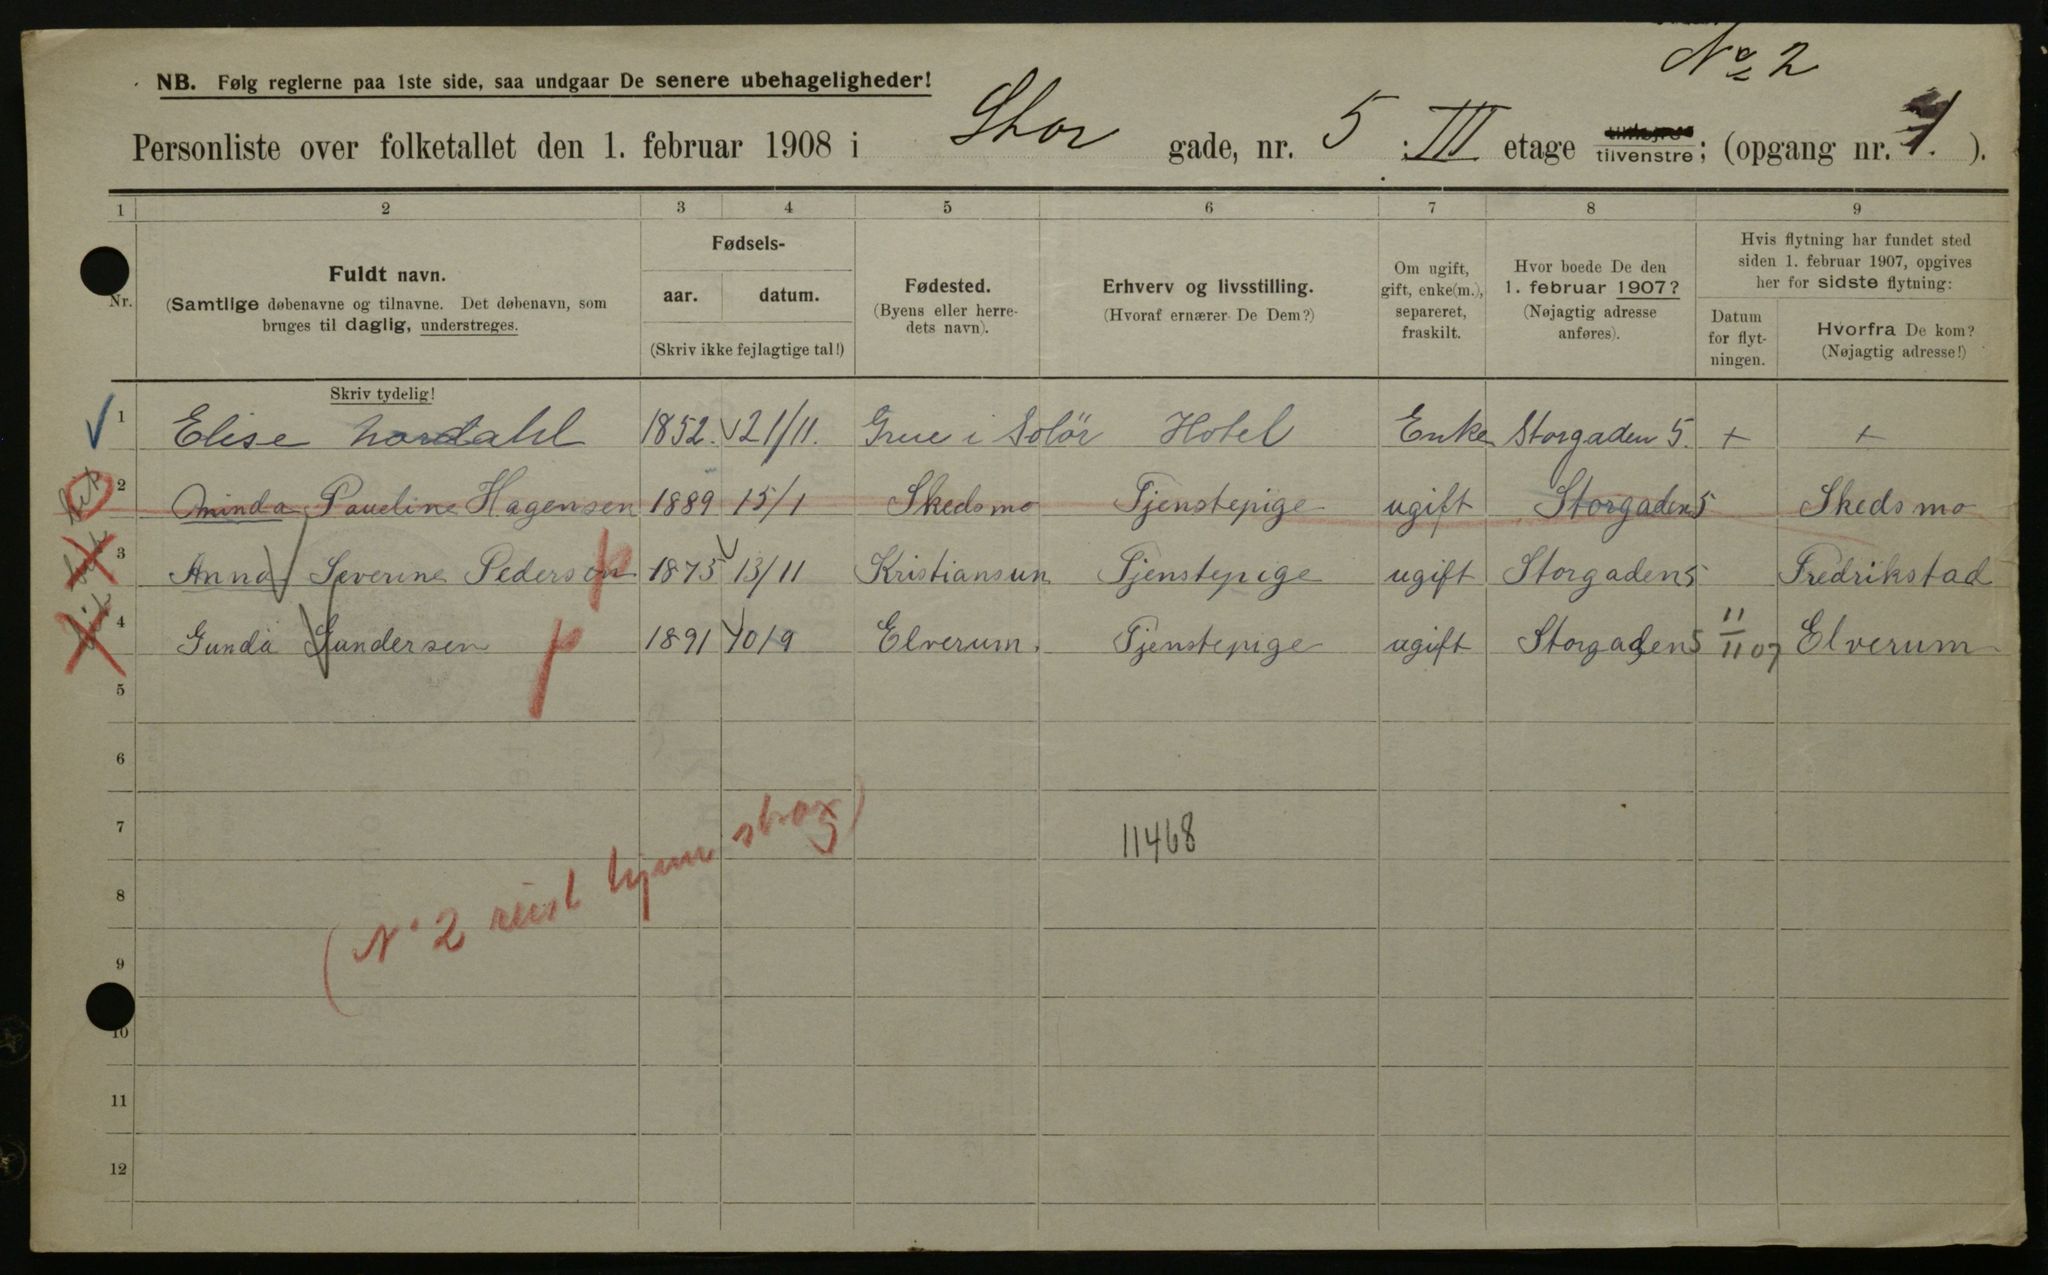 No 2
NB. Følg reglerne paa 1ste side, saa undgaar De senere ubehageligheder!
Personliste over folketallet den 1. februar 1908 i Stor gade, nr. 5 : III etage tilhøjre tilvenstre; (opgang nr. 1. ).
1 2 3 4 5 6 7 8 9
Nr.
Fuldt navn.
(Samtlige døbenavne og tilnavne. Det døbenavn, som
bruges til daglig, understreges.
Fødsels-
aar. datum.
(Skriv ikke fejlagtige tal!)
Fødested.
(Byens eller herre-
dets navn).
Erhverv og livsstilling.
(Hvoraf ernærer De Dem?)
Om ugift,
gift, enke(m.),
separeret,
fraskilt.
Hvor boede De den
1. februar 1907?
(Nøjagtig adresse
anføres).
Hvis flytning har fundet sted
siden 1. februar 1907, opgives
her for sidste flytning:
Datum
for flyt-
ningen.
Hvorfra De kom?
(Nøjagtig adresse!)
Skriv tydelig!
1 Elise Nordahl 1852. 21/11. Grue i Solör Hotel Enke Storgaden 5. + +
2 Minda Pauline Hagensen 1889 15/1 Skedsmo Tjenstepige ugift Storgaden 5 Skedsmo
3 Anna Severine Pedersen 1875 13/11 Kristiansun Tjenstepige ugift Storgaden 5 Fredrikstad
4 Gunda Gundersen 1891 10/9 Elverum. Tjenstepige ugift Storgaden 5 11/11 07 Elverum
5
6
7
8
9
10
11
12
11468
(No 2 reist hjem strax)